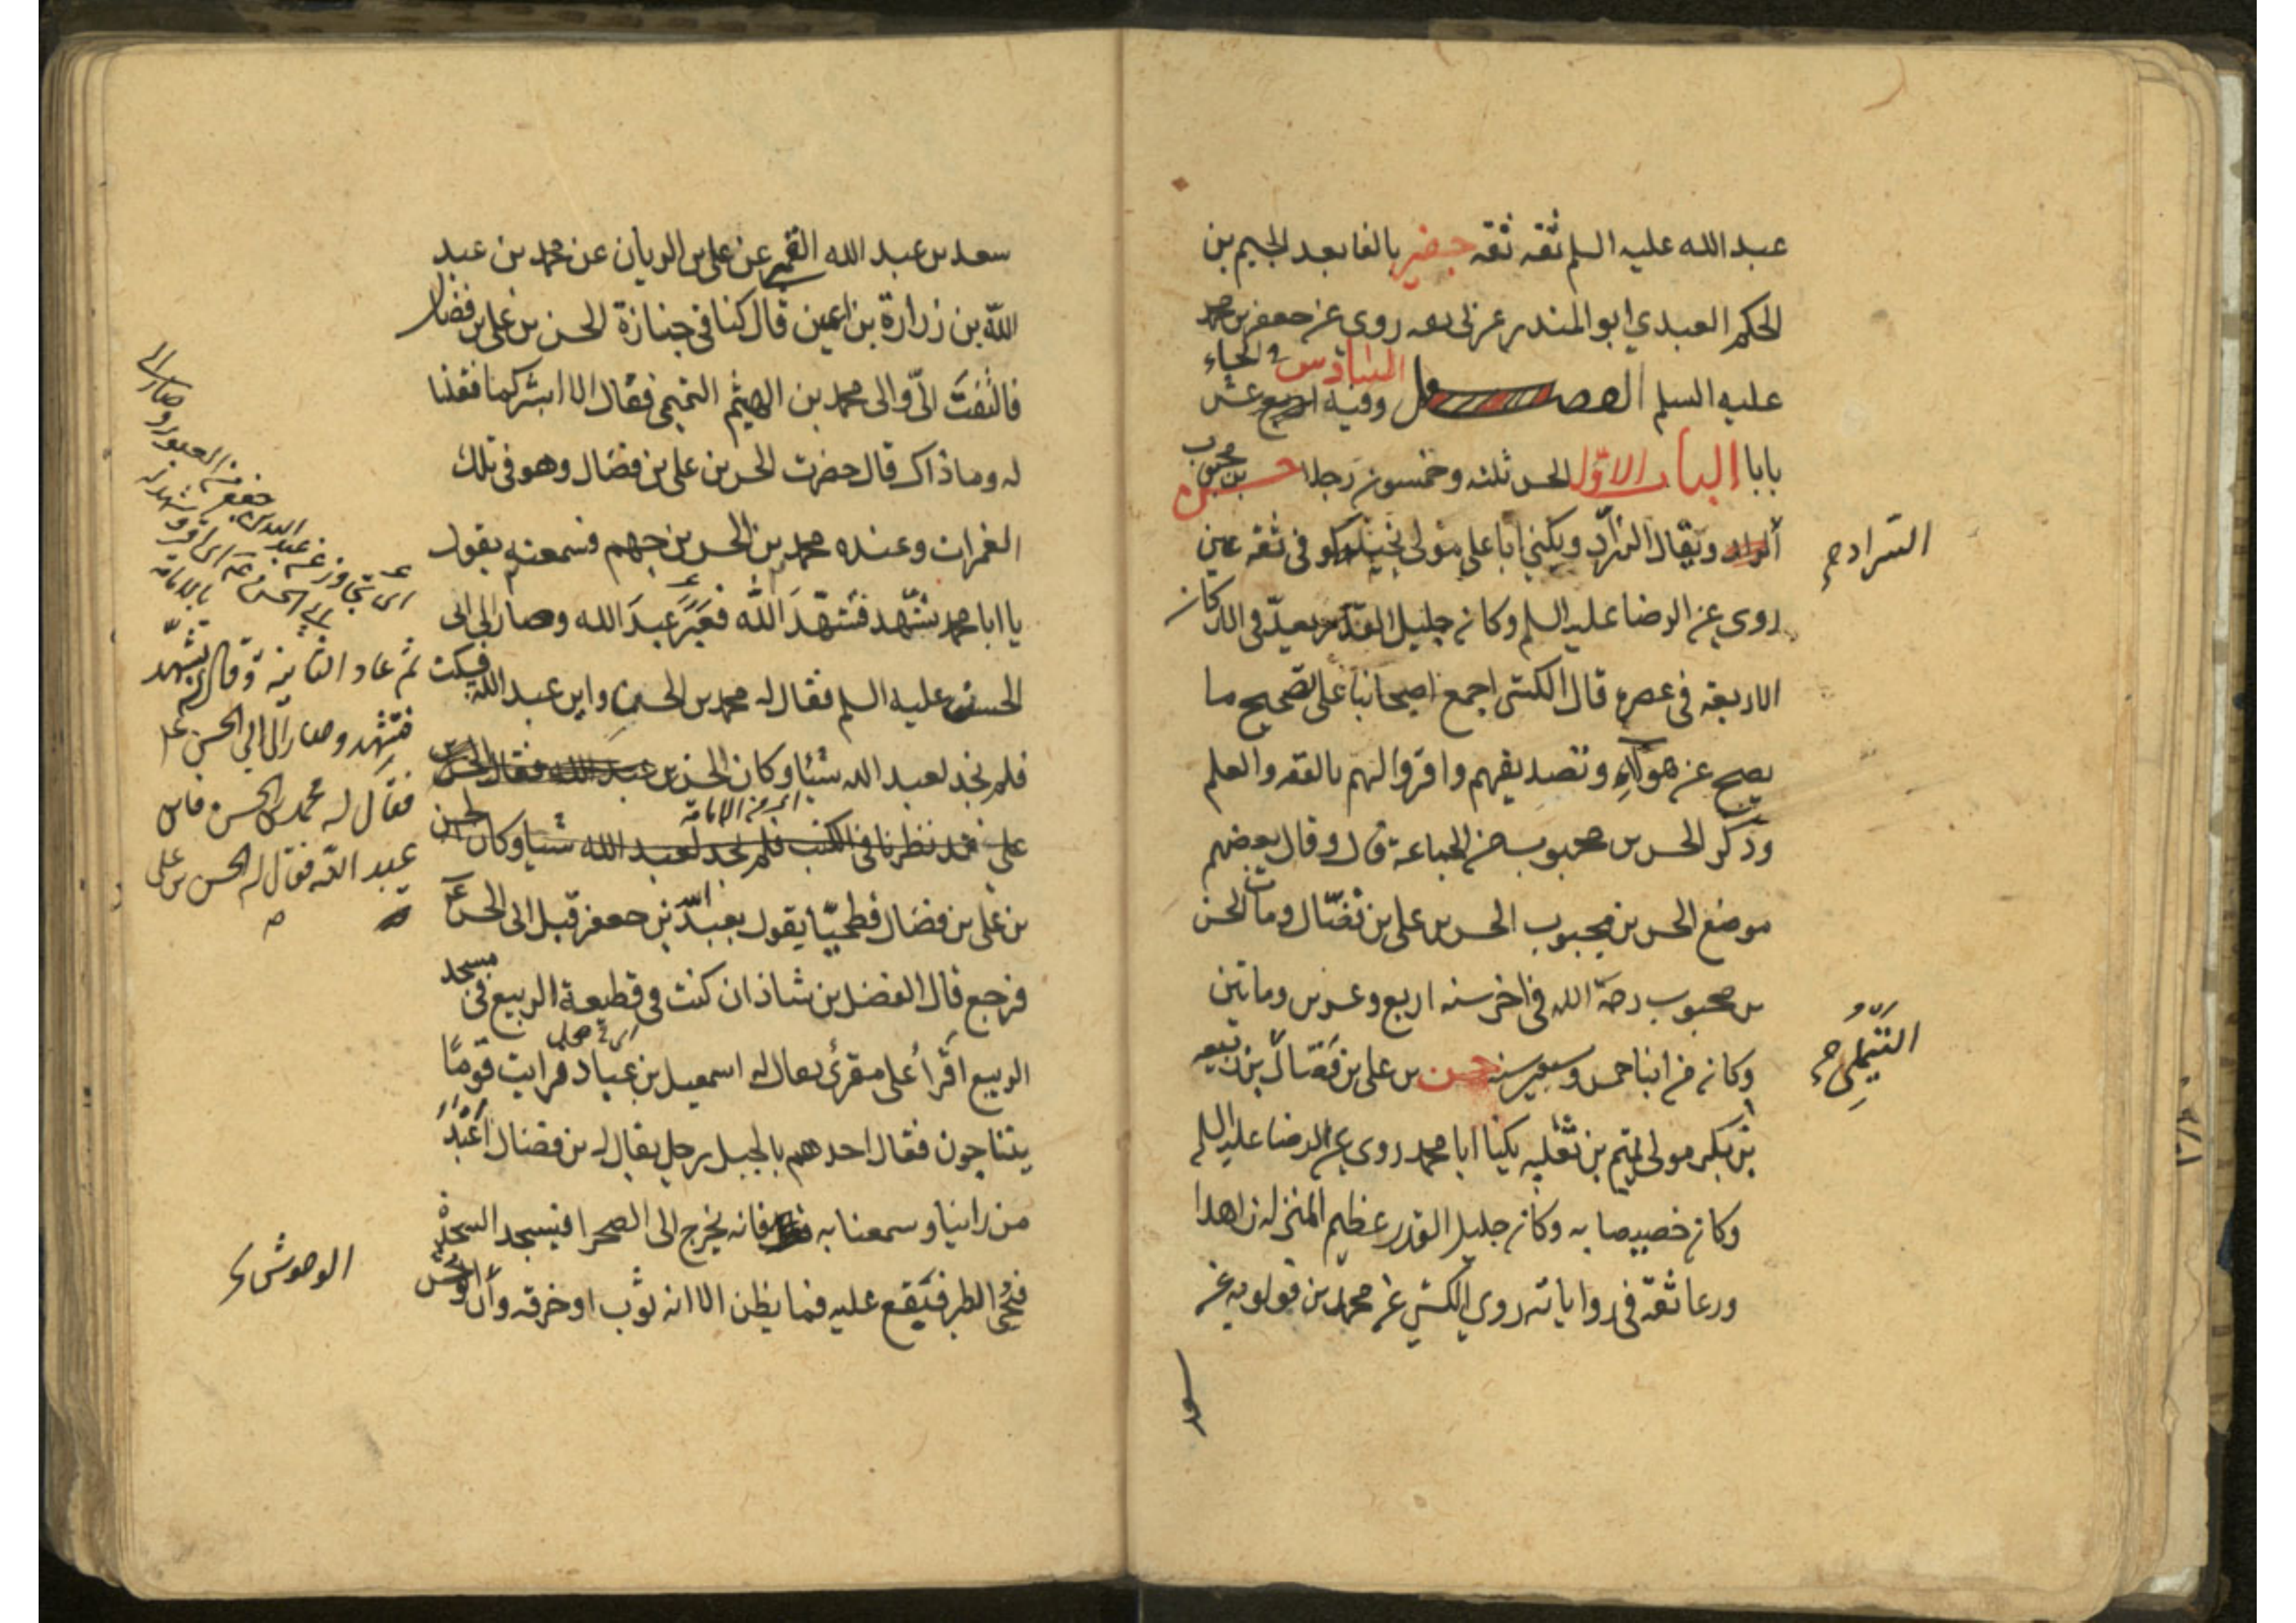 عبد الله عليه السلم ثقه ثقه جفير بالفا بعد الجيم بن
الحكم العبدي ابو المنذر عربي ثقه روى عن جعفر بن محمد
عليه السلم الفصل السادس في الحاء وفيه اربع عشر
بابا الباب الاوّل الحسن ثلثه وخمسون رجلا حسن بن محبوب
السراد ويقال الزرّاد ويكنى ابا على مولى بجيله كوفى ثقه عين
روى عن الرضا عليه السلم وكان جليل القدر يعدّ فى الاركان
الاربعه فى عصره قال الكشى اجمع اصحابنا على تصحيح ما
يصح عن هولاء وتصديقهم واقروا لهم بالفقه والعلم
وذكر الحسن بن محبوب من الجماعة قال وقال بعضهم
موضع الحسن بن محبوب الحسن بن على بن فضّال ومات الحسن
بن محبوب رحمة الله فى اخر سنه اربع وعشرين وماتين
وكان من ابنا خمس وسبعين سنه حسن بن على بن فضّال بن
بن بكر مولى لتيم بن ثعلبه يكنا ابا محمد روى عن الرضا عليه السلم
وكان خصيصا به وكان جليل القدر عظيم المنزله زاهدا
ورعا ثقة فى رواياته روى الكشى عن محمد بن قولويه عن
سعد
السراد
التيملى
سعد بن عبد الله القمى عن على بن الريان عن محمد بن عبد
الله بن زرارة بن اعين قال كنا فى جنازة الحسن بن على بن فضال
فالتفت الىّ والى محمد بن الهيثم التميمى فقال الا ابشركما فقلنا
له وما ذاك قال حضرت الحسن بن على بن فضال وهو فى تلك
الغمرات وعنده محمد بن الحسن بن جهم فسمعته يقول
يا ابا محمد تشهّد فتشهّد الله فعبَر عبدَ الله وصار الى ابى
الحسن عليه السلم فقال له محمد بن الحسن واين عبد الله فسكت
فلم نجد لعبد الله شيئا وكان الحسن بن عبد الله فقال الحسن
على قد نظرنا فى الكتب فلم نجد لعبد الله شيئا وكان الحسن
بن على بن فضال فطحيّا يقول بعبد الله بن جعفر قبل ابى الحسن
فرجع قال الفضل بن شاذان كنت فى قطيعة الربيع فى مسجد
الربيع اقرأ على مقرئ يقال له اسمعيل بن عباد فرايت قومًا
يتناجون فقال احدهم بالجبل رجل يقال له بن فضال اعبد
من راينا وسمعنا به فانه يخرج الى الصحرا فيسجد السجدة
فتجئ الطير فتقع عليه فما يظن الا انه ثوب او خرقه وان الوحش
اى من الامامة
اى تجاوز عن عبد الله بن جعفر
ثم عاد الثانية وقال له تشهّد
فتشهد وصار الى ابى الحسن
فقال له محمد بن الحسن فاين
عبد الله فقال له الحسن بن على
الوحوش